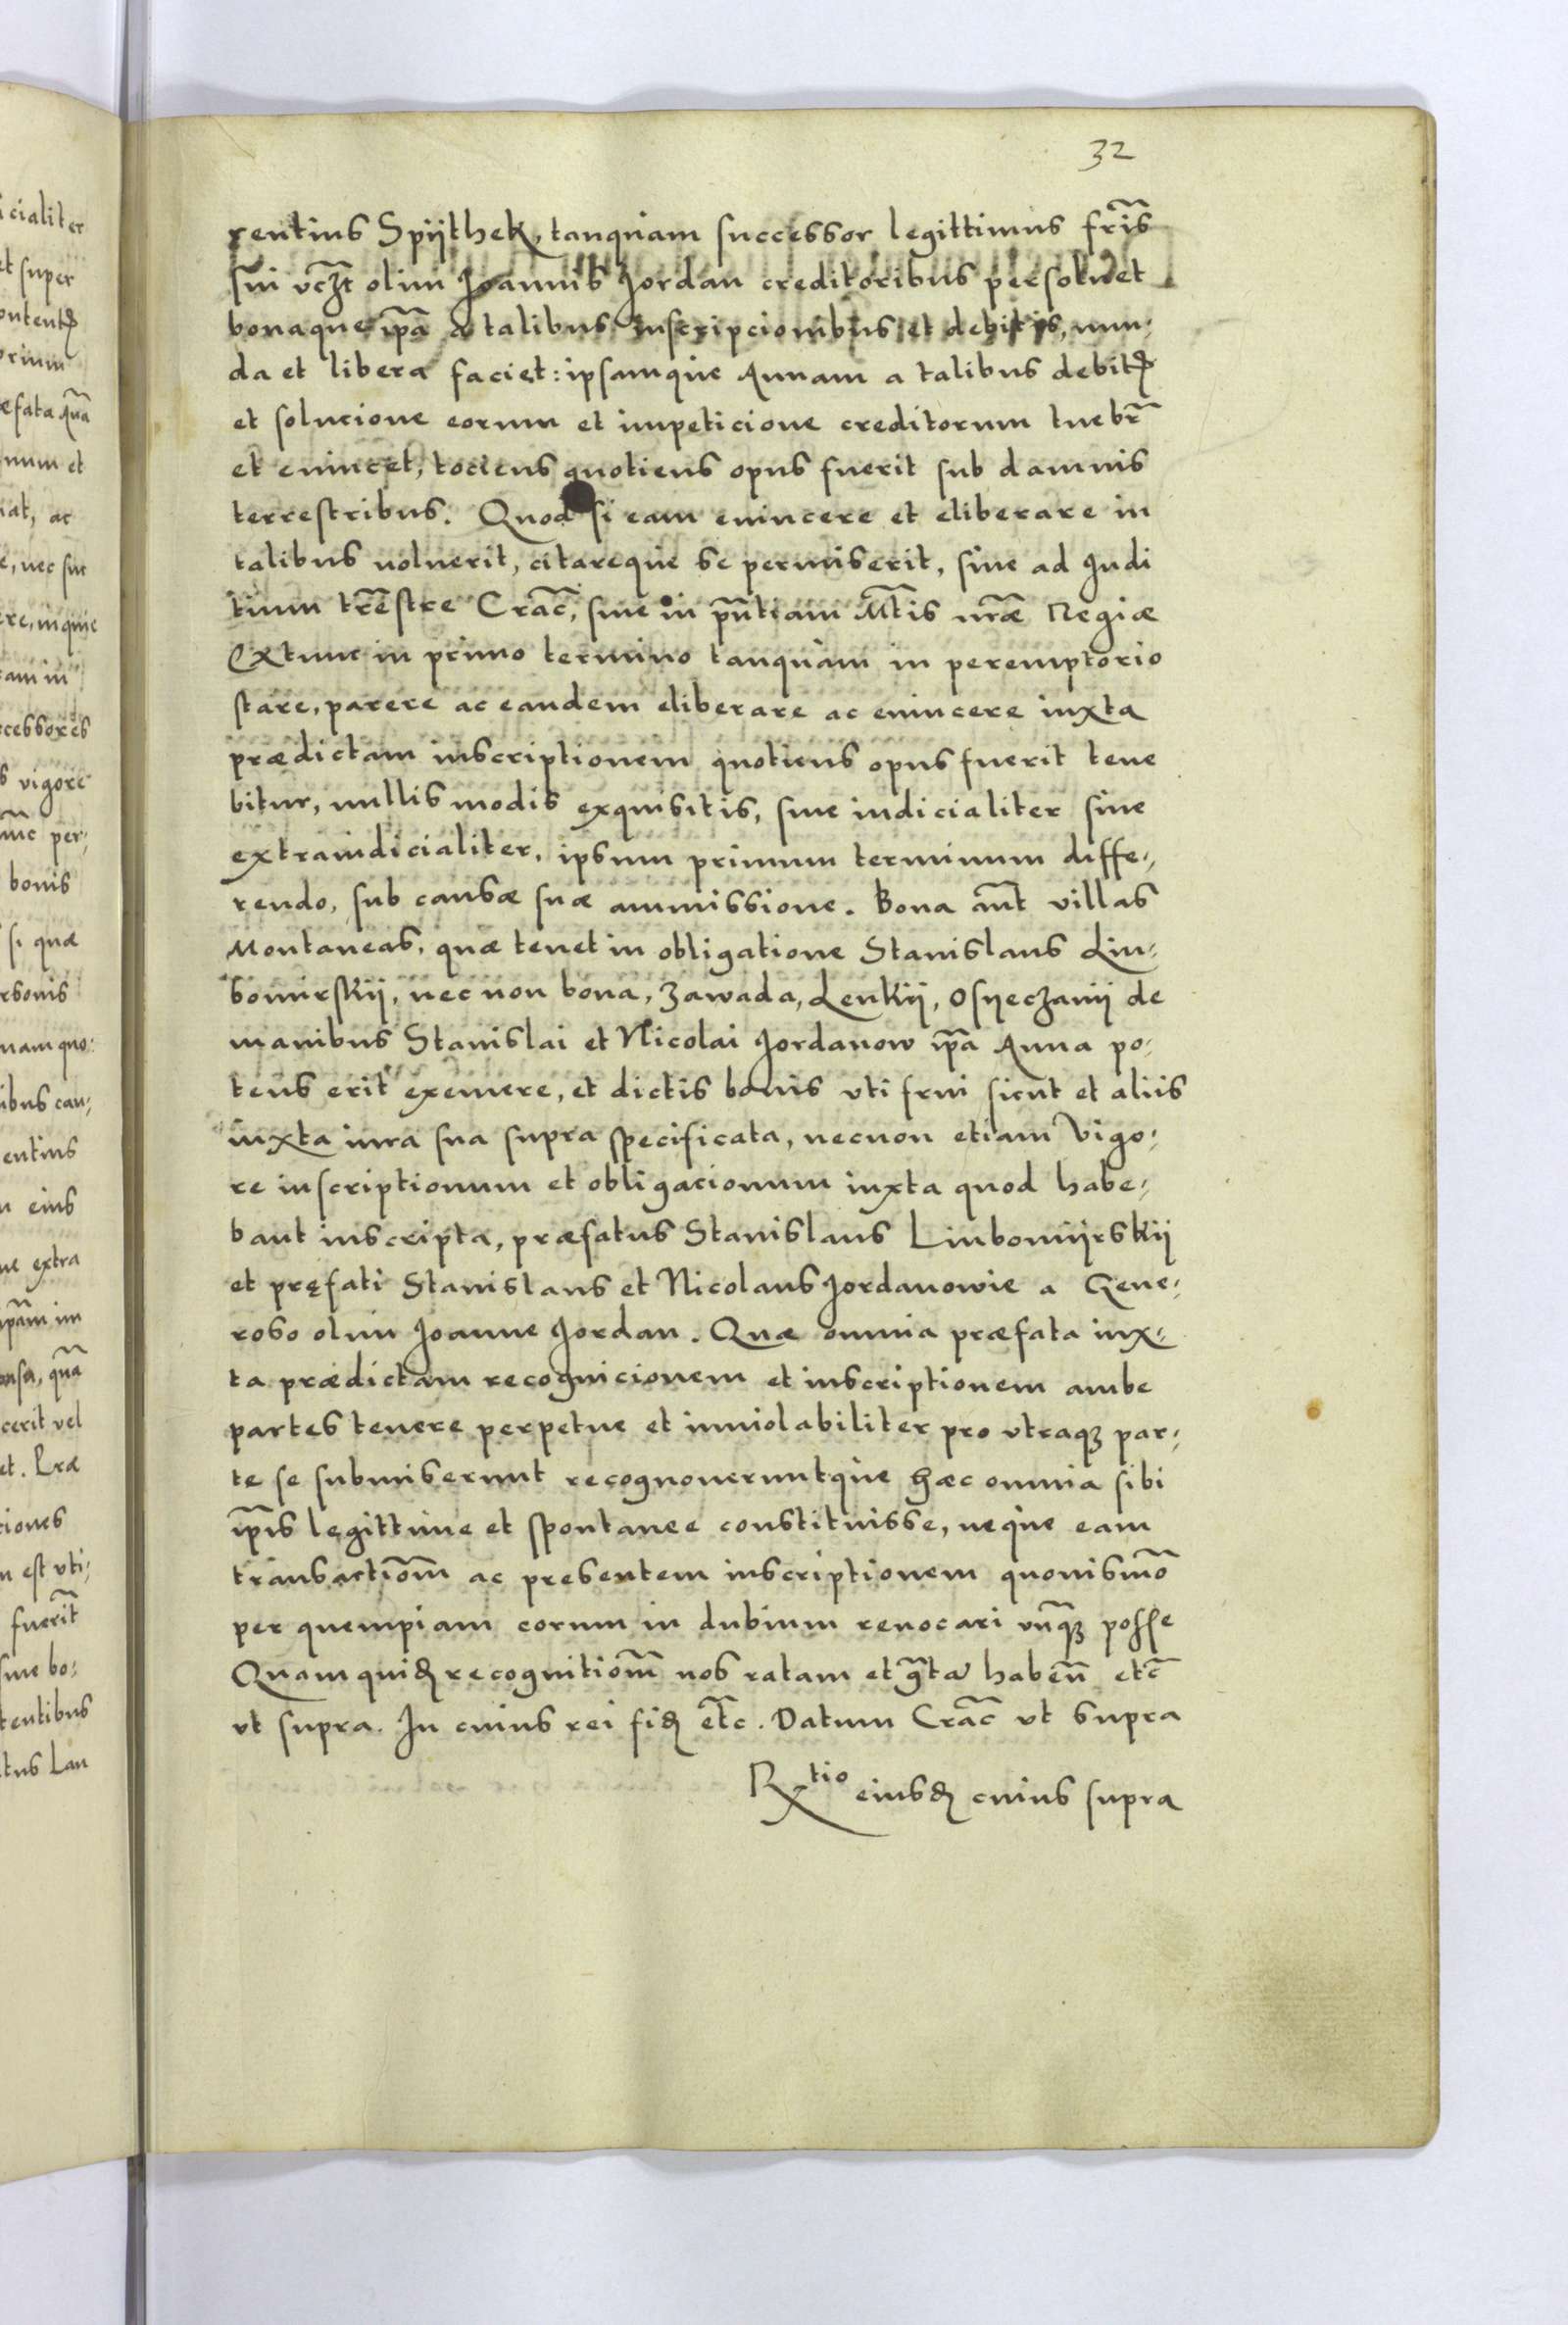 32
rentius Spijthek, tanquam successor legittimus fr̃is
sui vcz̃t olim Joannis Jordan creditoribus persoluet
bonaque ip̃a a talibus Inscripcionibus et debitis, mun-
da et libera faciet: ipsamque Annam a talibus debitꝭ
et solucione eorum et impeticione creditorum tuebr̃
et euincet, tociens quotiens opus fuerit sub damnis
terrestribus. Quod si eam euincere et eliberare in
talibus noluerit, citareque se permiserit, siue ad Judi
tium trẽstre Crac̃, siue in pñtiam Mt̃is nr̃æ Regiæ
Extunc in primo termino tanquam in peremptorio
stare, parere ac eandem eliberare ac euincere iuxta
prædictam inscriptionem quotiens opus fuerit tene
bitur, nullis modis exquisitis, siue iudicialiter siue
extraiudicialiter, ipsum primum terminum diffe-
rendo, sub causæ suæ ammissione. Bona aut̃ villas
Montaneas, quæ tenet in obligatione Stanislaus Liu-
bomirskij, nec non bona, Zawada, Lenkij, Osyeczanij de
manibus Stanislai et Nicolai Jordanow ip̃a Anna po-
tens erit exemere, et dictis bonis vti frui sicut et aliis
iuxta iura sua supra specificata, necnon etiam Vigo-
re inscriptionum et obligacionum iuxta quod habe-
bant inscripta, præfatus Stanislaus Liubomijrskij
et pręfati Stanislaus et Nicolaus Jordanowie a Gene-
roso olim Joanne Jordan. Quæ omnia præfata iux-
ta prædictam recognicionem et inscriptionem ambe
partes tenere perpetue et inuiolabiliter pro vtraqꝫ par-
te se submiserunt recognoueruntque hæc omnia sibi
ip̃is legittime et spontanee constituisse, neque eam
transactiom̃ ac presentem inscriptionem quouismõ
per quempiam eorum in dubium reuocari vnq̃ꝫ posse
Quam quiđ recognitiom̃ nos ratam et gr̃ta habeñ etc̃
vt supra. In cuius rei fiđ et̃c. Datum Crac̃ vt supra
Rx tio eiusđ cuius supra